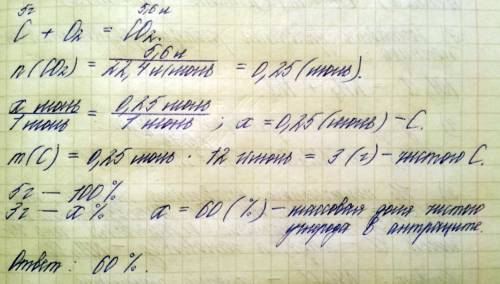 5г 5,6л
C + O₂ = CO₂.
n(CO₂) = 5,6л / 22,4 л/моль = 0,25 (моль).
x моль / 1 моль = 0,25 моль / 1 моль ; x = 0,25 (моль) – C.
m(C) = 0,25 моль · 12 г/моль = 3 (г) – чистого C.
5г — 100%
3г — x % x = 60 (%) – массовая доля чистого
углерода в антраците.
Ответ: 60 %.